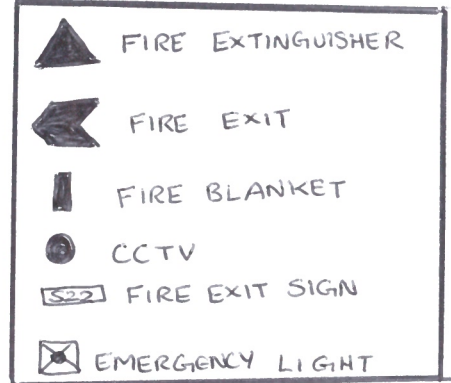 FIRE EXTINGUISHER
FIRE EXIT
FIRE BLANKET
CCTV
S22 FIRE EXIT SIGN
EMERGENCY LIGHT